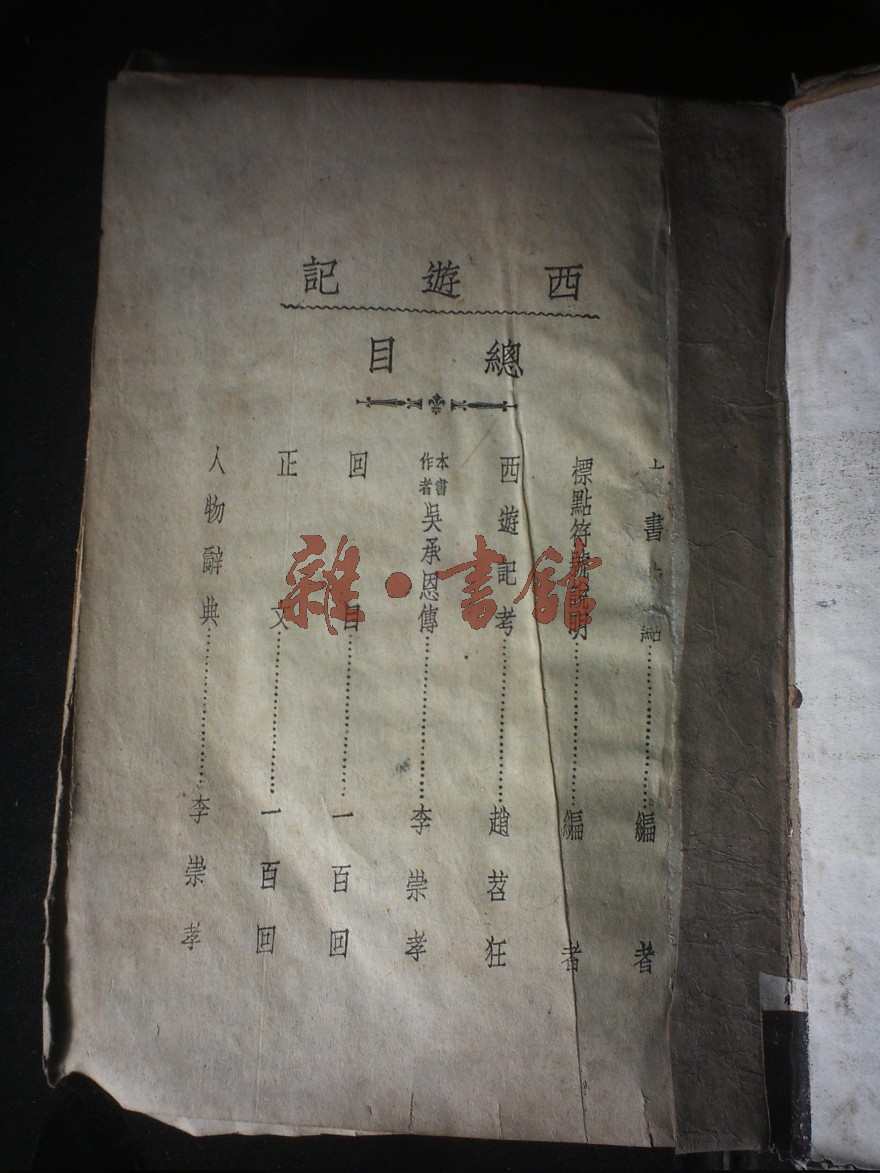 西遊記
總目
書
編者
標點符號說明……編者
西遊記考……趙苕狂
本書作者吳承恩傳……李崇孝
回目……一百回
正文……一百回
人物辭典……李崇孝
雜·書館